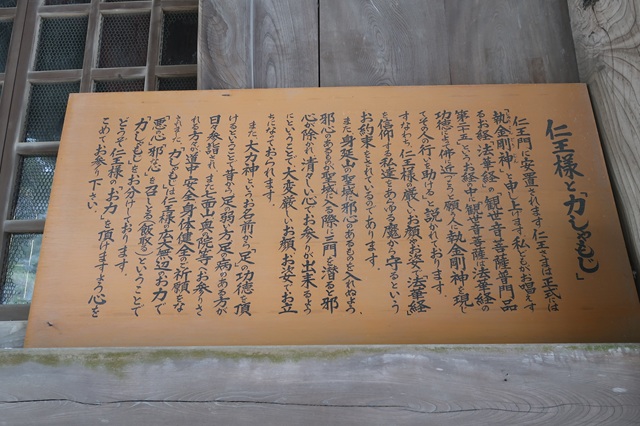 仁王様と「力しゃもじ」
仁王門に安置されます仁王さまは正式には
「執金剛神」と申し上げます。私どもがお唱えす
るお経「法華経」の「観世音菩薩普門品
第二十五」というお経の中に観世音菩薩は法華経の
功徳にて佛の道をこころざし願う人に執金剛神を現し
てその人の行いを助けると説かれております。
すなわち、仁王様の厳しいお顔やお姿で「法華経」
を信仰する私達をあらゆる魔から守るという
お約束をされているのであります。
また身延山の聖域に邪心のあるものを入れぬよう、
邪心のあるものが聖域に入る際に三門を潜ると邪
心が除かれ清々しい心でお参りが出来るよう
にということで大変厳しいお顔、お姿でお立
ちになっておられます。
また、大力神というお名前から「足の力徳を頂
ける」ということで昔から足の弱い方、足の病のある方が
日々参詣され、また七面山、奥之院等へお参りさ
れる方々が道中安全、身体健全を祈願をな
されました。「力しゃもじ」は仁様の広大無辺のお力で
悪い心「邪な心」を召しとる（飯取）ということで
「力しゃもじ」をお分けしております。
どうぞ仁王様のお力を頂けますよう心を
こめてお参り下さい。